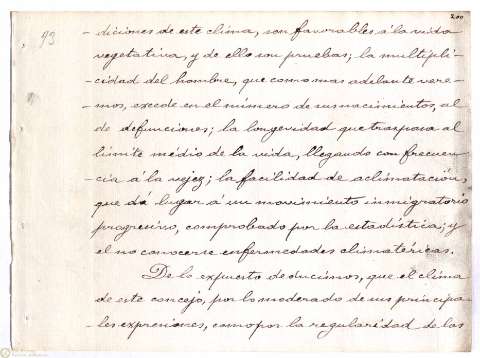 200
93
-diciones de este clima, son favorables á la vida
vegetativa, y de ello son pruebas; la multipli-
-cidad del hombre, que como mas adelante vere-
-mos, excede en el número de sus nacimientos, al
de defunciones; la longevidad que traspasa al
límite médio de la vida, llegando con frecuen-
-cia a la vejez; la facilidad de aclimatación,
que dá lugar a un movimiento inmigratorio
progresivo, comprobado por la estadística; y
el no conocerse enfermedades climatéricas.
De lo expuesto deducimos, que el clima
de este concejo, por lo moderado de sus principa-
-les expresiones, como por la regularidad de las